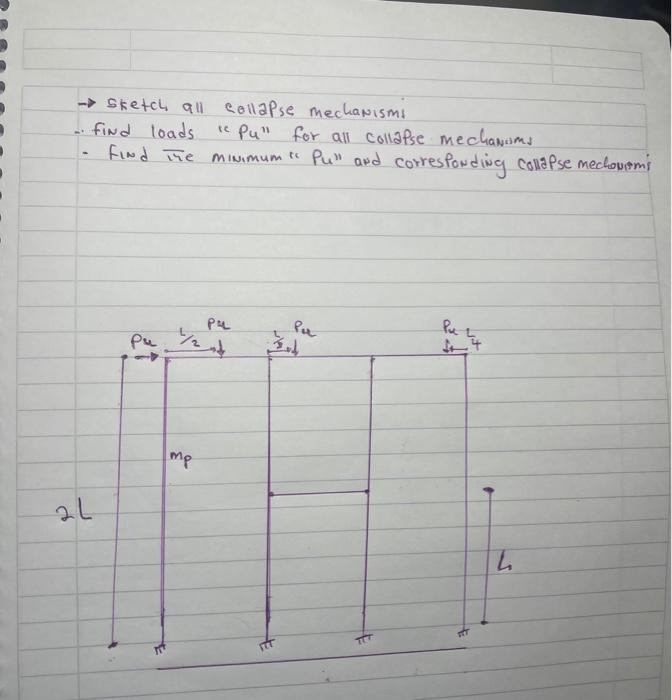 → sketch all collapse mechanisms
- find loads "Pu" for all collapse mechanisms
- find the minimum "Pu" and corresponding collapse mechanisms
Pu L/2 Pu L/3 Pu Pu L/4
Mp
2L
L